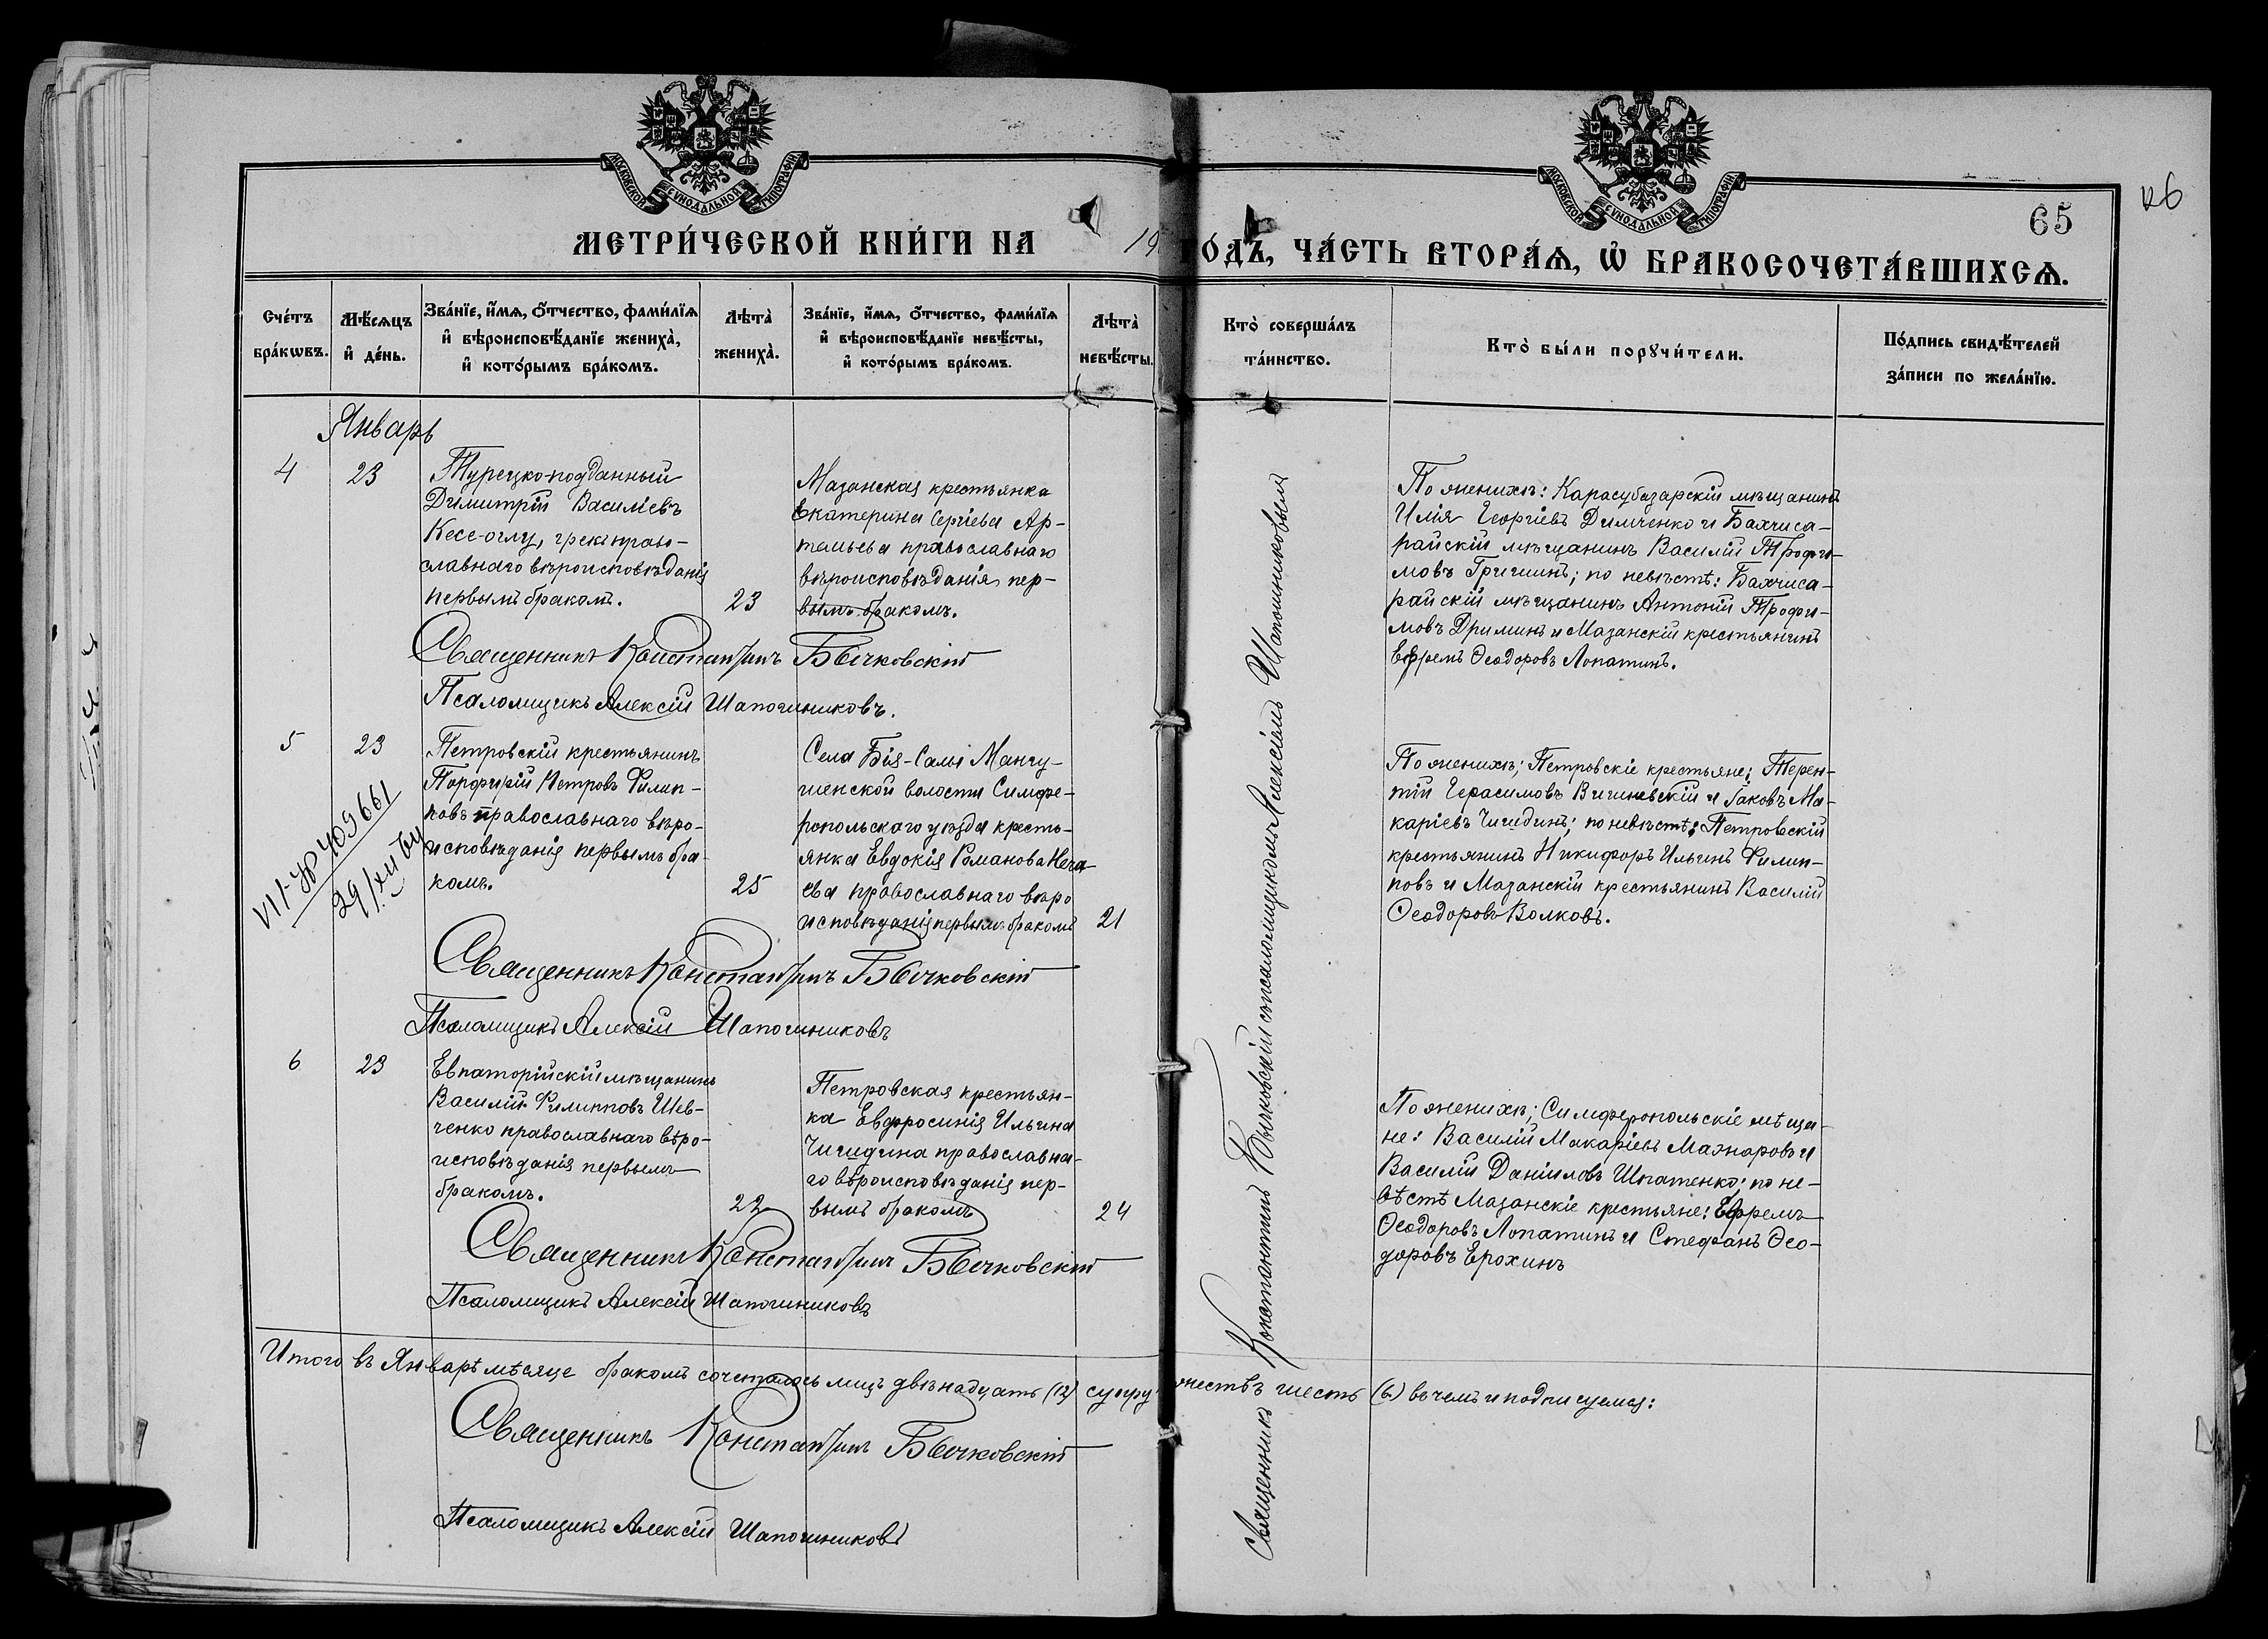 МОСКОВСКОЙ СѴНОДАЛЬНОЙ ТИПОГРАФІИ
МОСКОВСКОЙ СѴНОДАЛЬНОЙ ТИПОГРАФІИ
65
МЕТРИ́ЧЕСКОЙ КНИ́ГИ НА 19
ГО́ДЪ, ЧА́СТЬ ВТОРА́Ѧ, Ѡ҆ БРАКОСОЧЕТА́ВШИХСѦ.
Сче́тъ
бра́кωвъ.
Мѣ́сѧцъ
и҆ де́нь.
Зва́нїе, и҆́мѧ, о҆́тчество, фами́лїѧ
и҆ вѣроисповѣ́данїе жениха̀,
и҆ кото́рымъ бра́комъ.
Лѣта̀
жениха̀.
Зва́нїе, и҆́мѧ, о҆́тчество, фами́лїѧ
и҆ вѣроисповѣ́данїе невѣ́сты,
и҆ кото́рымъ бра́комъ.
Лѣта̀
невѣ́сты.
Кто̀ соверша́лъ
та́инство.
Кто̀ бы́ли порꙋчи́тели.
По́дпись свидѣ́телей
за́писи по жела́нїю.
Январь
4
23
Турецко-подданный
Димитрій Васильевъ
Кесе-оглу, грекъ право-
славнаго вѣроисповѣданія
первымъ бракомъ.
23
Мазанская крестьянка
Екатерина Сергіева Ар-
темьева православнаго
вѣроисповѣданія пер-
вымъ бракомъ.
По женихѣ: Карасубазарскій мѣщанинъ
Илія Георгіевъ Димченко и Бахчиса-
райскій мѣщанинъ Василій Трофи-
мовъ Гришинъ; по невѣстѣ: Бахчиса-
райскій мѣщанинъ Антоній Трофи-
мовъ Дриминъ и Мазанскій крестьянинъ
Ефремъ Ѳеодоровъ Лопатинъ.
Священникъ Константинъ Бычковскій
Псаломщикъ Алексій Шапошниковъ.
5
23
Петровскій крестьянинъ
Порфирій Петровъ Филип-
повъ православнаго вѣро-
исповѣданія первымъ бра-
комъ.
25
Села Бія-Салы Мангу-
шенской волости Симфе-
ропольскаго уѣзда кресть-
янка Евдокія Романова Неча-
ева православнаго вѣро
исповѣданія первымъ бракомъ
21
По женихѣ; Петровскіе крестьяне: Терен-
тій Герасимовъ Вишневскій и Іаковъ Ма-
каріевъ Чигидинъ; по невѣстѣ: Петровскій
крестьянинъ Никифоръ Ильинъ Филип-
повъ и Мазанскій крестьянинъ Василій
Ѳеодоровъ Волковъ.
VII-УР 409661
Священникъ Константинъ Бычковскій
Псаломщикъ Алексій Шапошниковъ
6
23
Евпаторійскій мѣщанинъ
Василій Филипповъ Шев-
ченко православнаго вѣро-
исповѣданія первымъ
бракомъ.
22
Петровская крестьян-
ка Евфросинія Ильина
Чигидина православна-
го вѣроисповѣданія пер-
вымъ бракомъ
24
По женихѣ; Симферопольскіе мѣща-
не: Василій Макаріевъ Махнаровъ и
Василій Даніиловъ Шпатенко; по не-
вѣстѣ Мазанскіе крестьяне: Ефремъ
Ѳеодоровъ Лопатинъ и Стефанъ Ѳео-
доровъ Ерохинъ
Священникъ Константинъ Бычковскій
Псаломщикъ Алексій Шапошниковъ
Священникъ Константинъ Бычковскій съ псаломщикомъ Алексіемъ Шапошниковымъ
Итого въ Январѣ мѣсяце бракомъ сочеталось лицъ двѣнадцать (12) супружествъ шесть (6) въ чемъ и подписуемся:
Священникъ Константинъ Бычковскій
Псаломщикъ Алексій Шапошниковъ